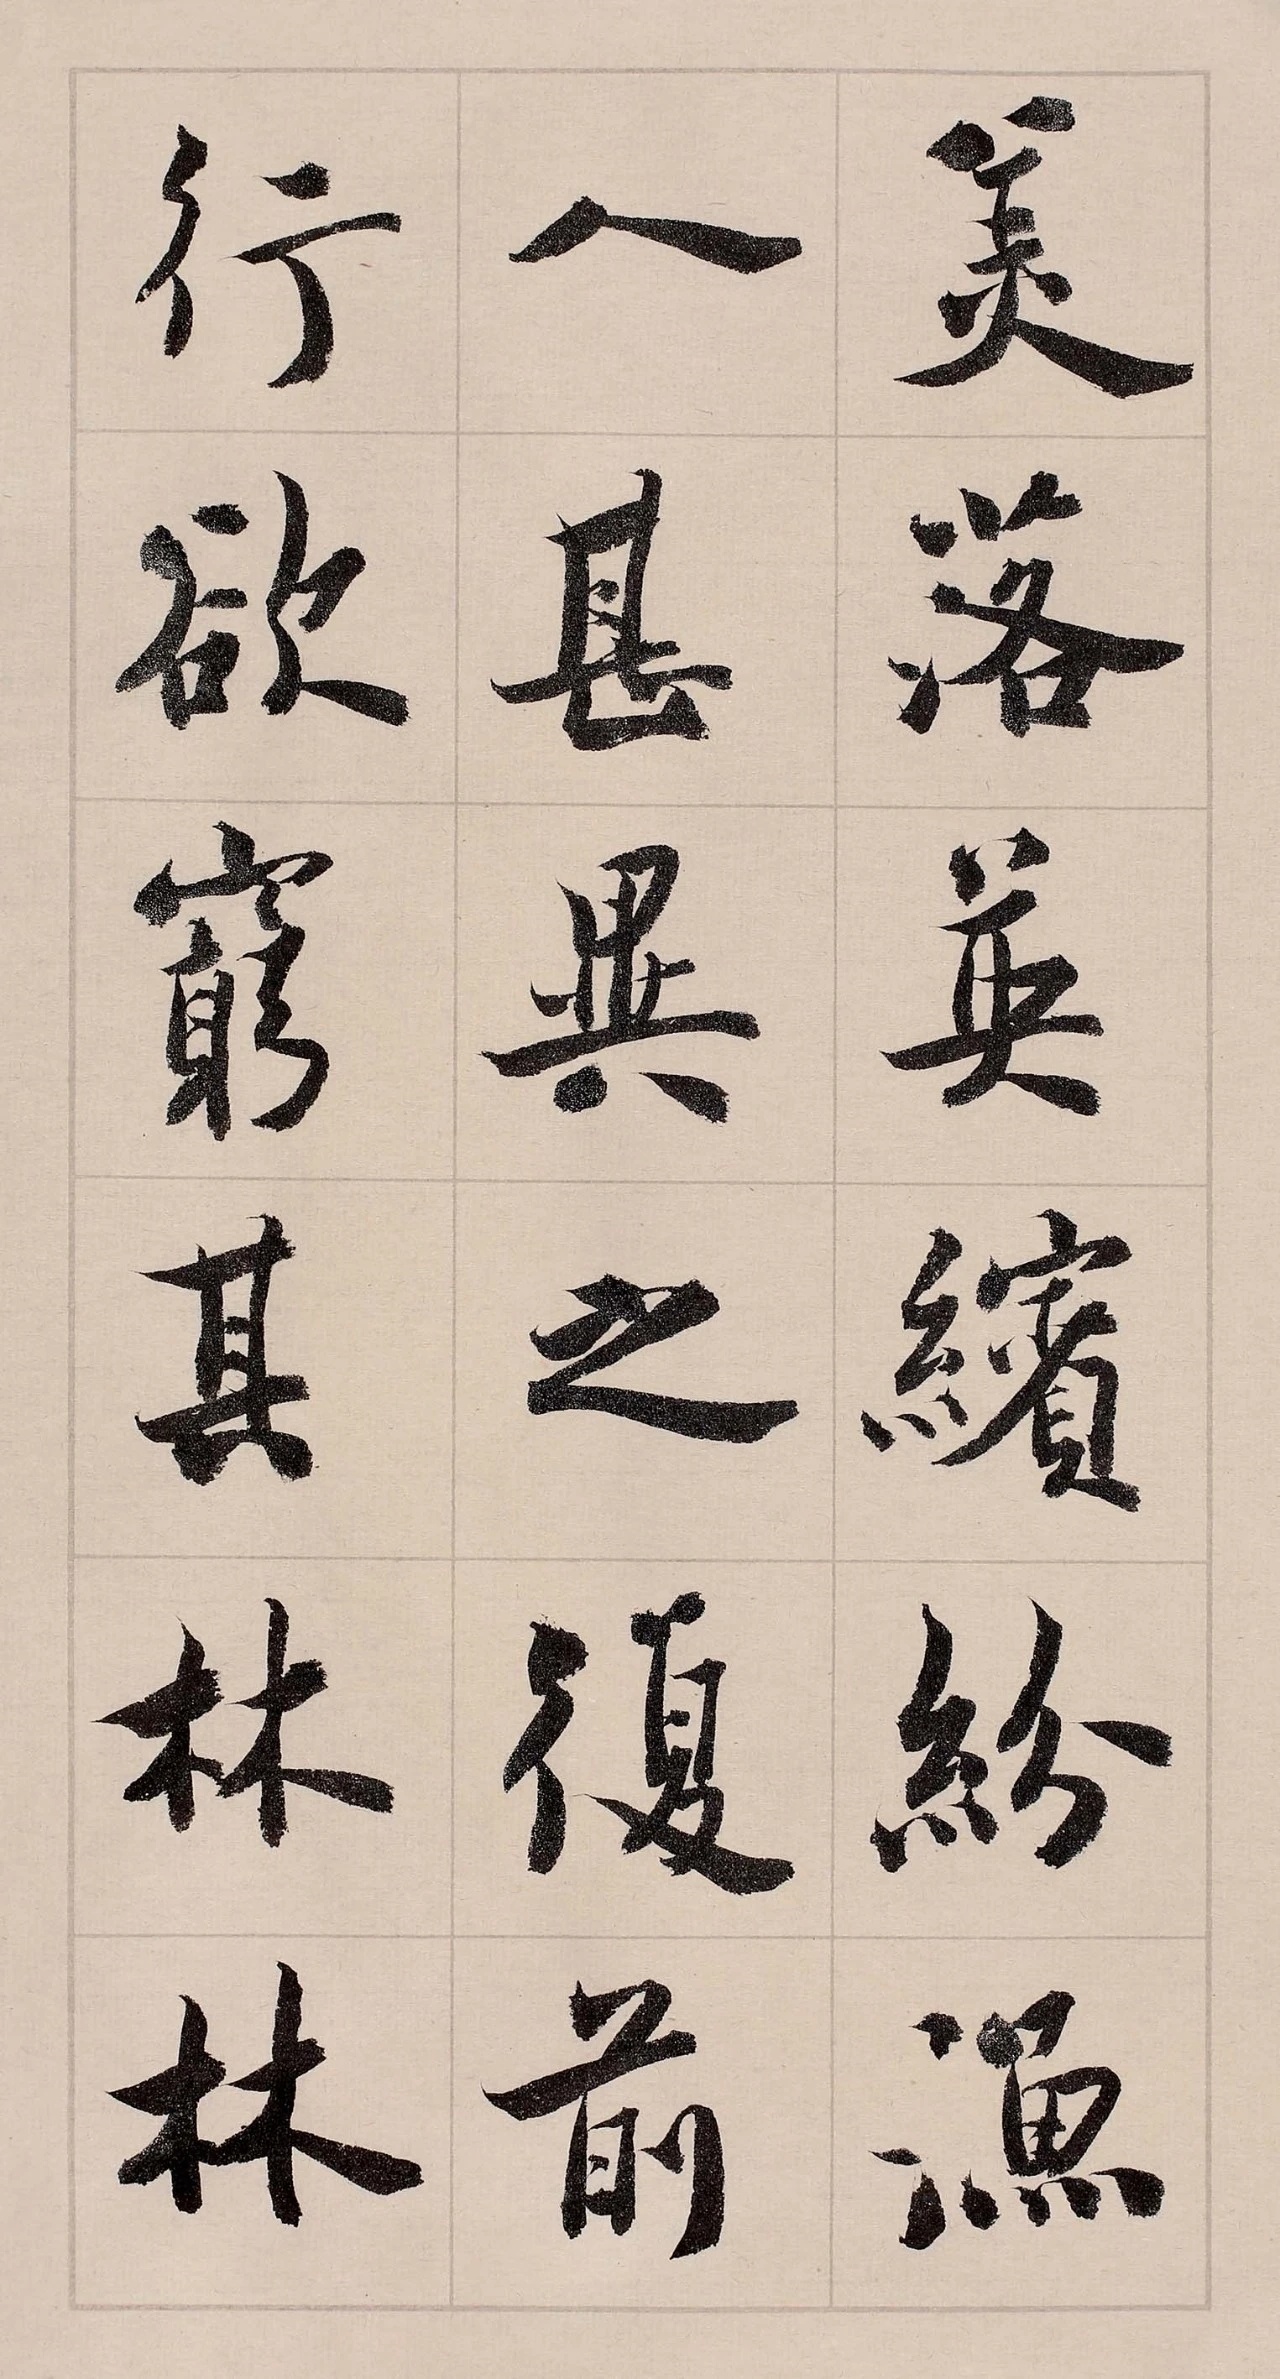 美落英繽紛漁
人甚異之復前
行欲窮其林林